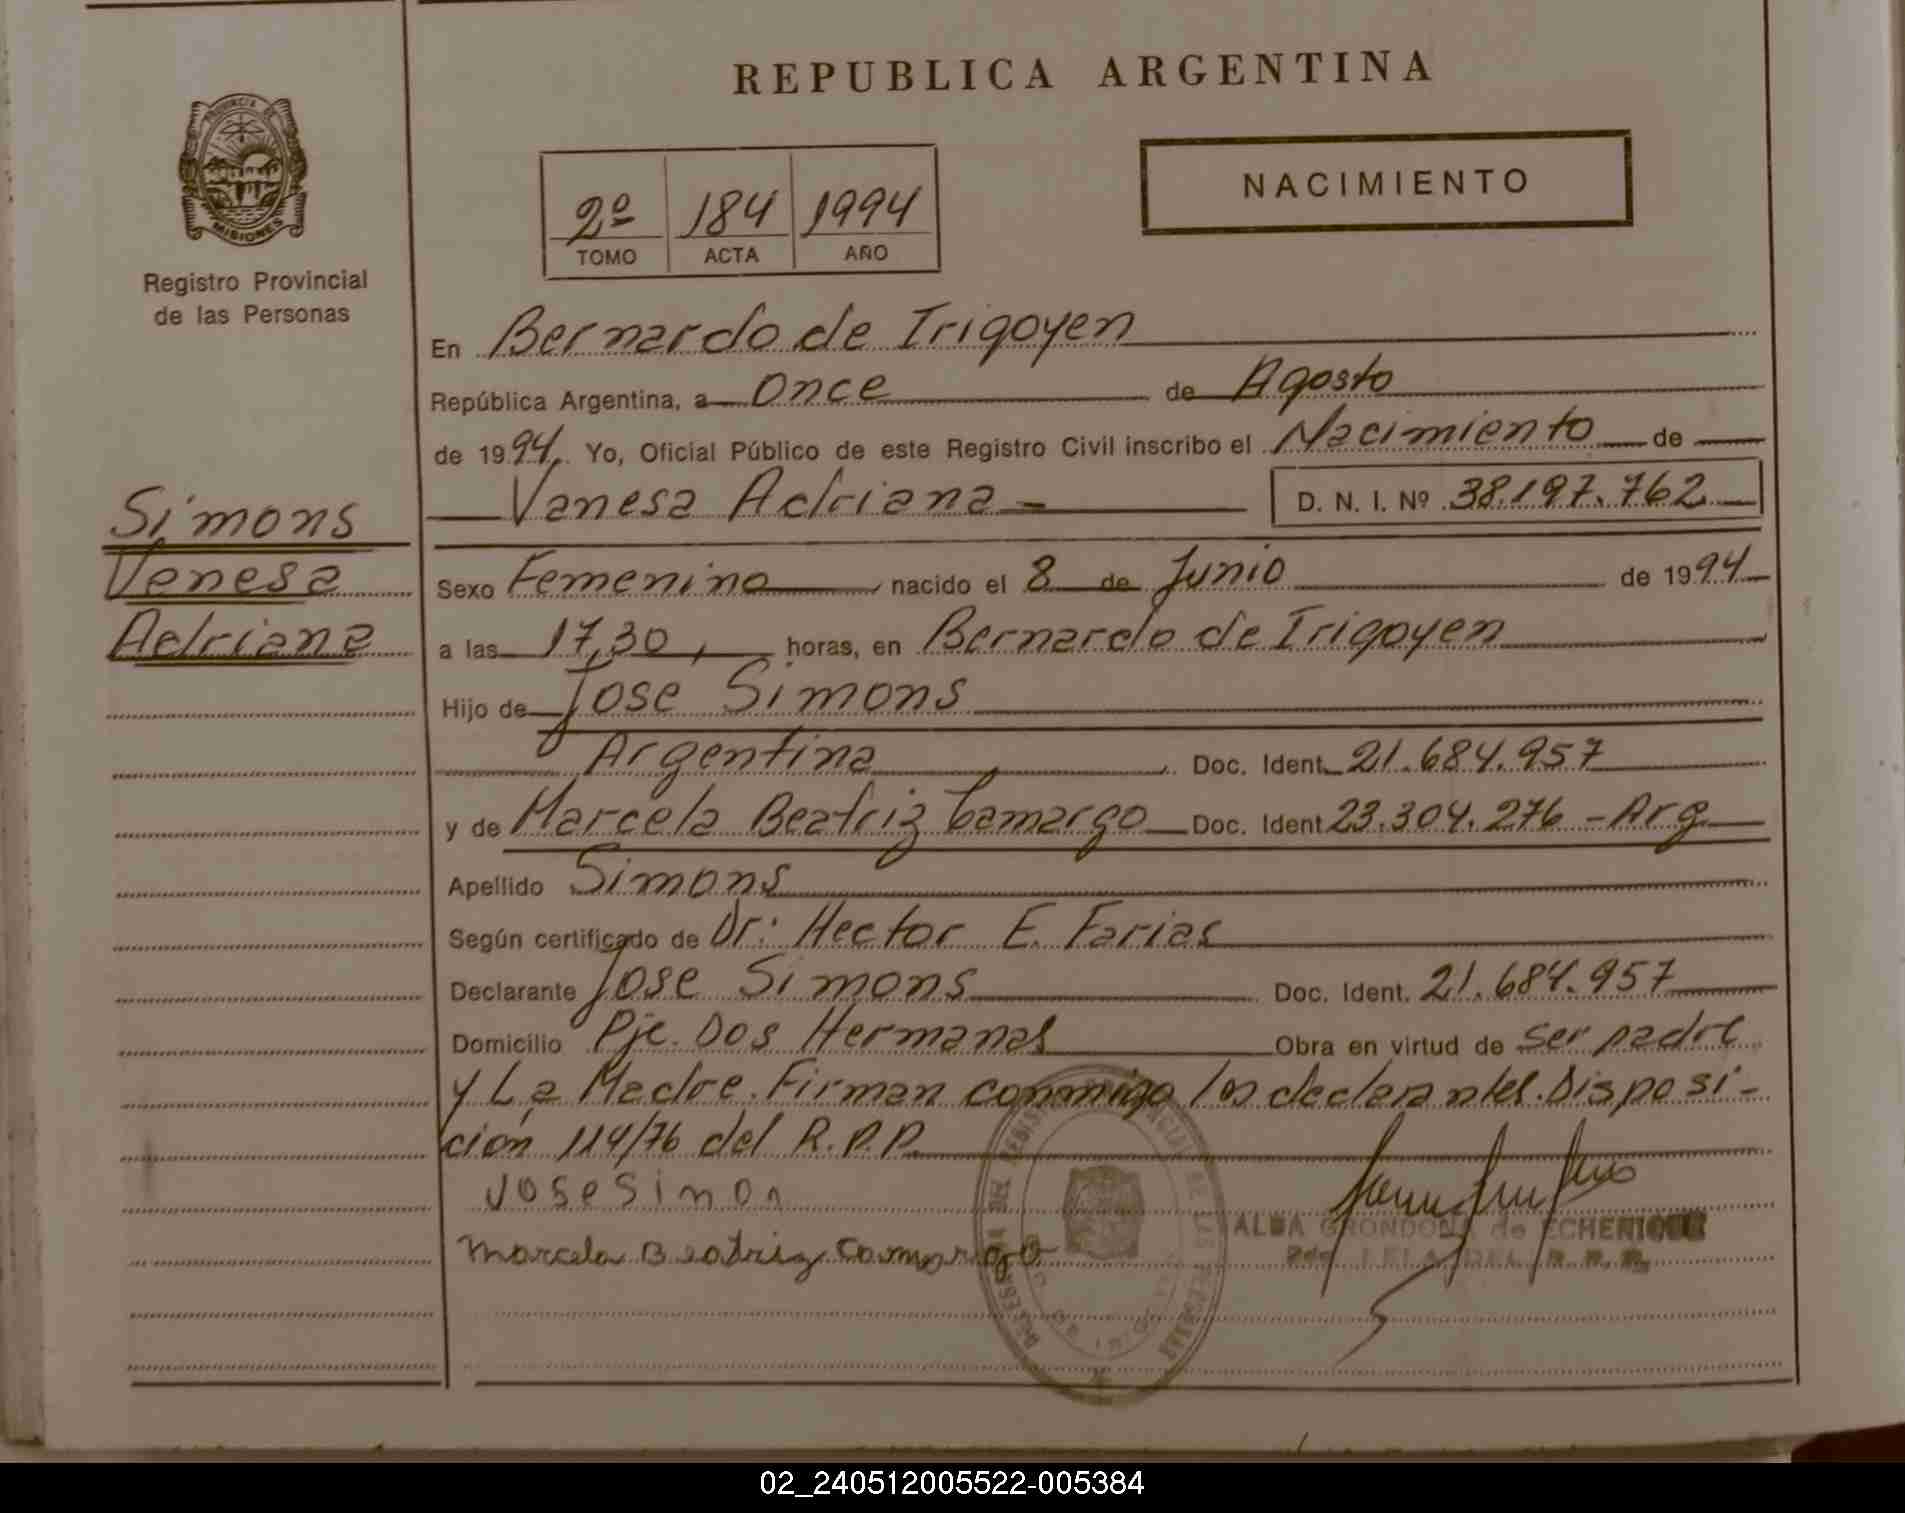 REPUBLICA ARGENTINA
PROVINCIA DE
MISIONES
Registro Provincial
de las Personas
2º 184 1994
TOMO ACTA AÑO
NACIMIENTO
En Bernardo de Irigoyen
República Argentina, a Once de Agosto
de 1994. Yo, Oficial Público de este Registro Civil inscribo el Nacimiento de
Vanesa Adriana D. N. I. Nº 38.197.762
Simons
Vanesa
Adriana
Sexo Femenino nacido el 8 de Junio de 1994
a las 17,30, horas, en Bernardo de Irigoyen
Hijo de Jose Simons
Argentina Doc. Ident. 21.684.957
y de Marcela Beatriz Camargo Doc. Ident 23.304.276 - Arg
Apellido Simons
Según certificado de Dr: Hector E. Farias
Declarante Jose Simons Doc. Ident. 21.684.957
Domicilio Pje. Dos Hermanas Obra en virtud de ser padre
y La Madre. Firman conmigo los declarantes. Disposi-
ción 114/76 del R.P.P.
Jose Simon
Marcela Beatriz Camargo
ALBA GRONDONA de ECHERIQUE
DEL R. P. P.
02_240512005522-005384